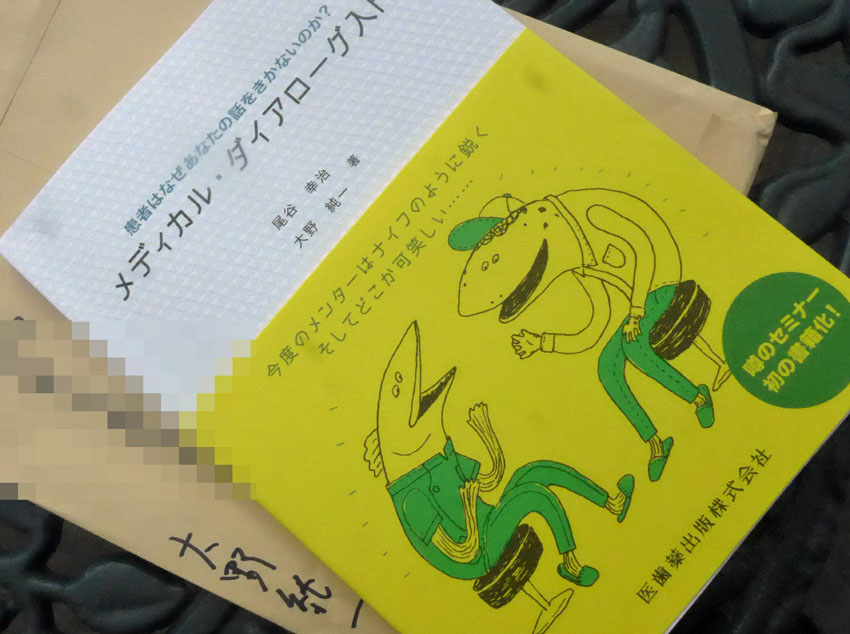 患者はなぜあなたの話をきかないのか?
メディカル・ダイアローグ入門
尾谷 幸治 著
大野 純一
今度のメンターはナイフのように鋭く
そしてどこか可笑しい……
噂のセミナー
初の書籍化!
医歯薬出版株式会社
大野純一